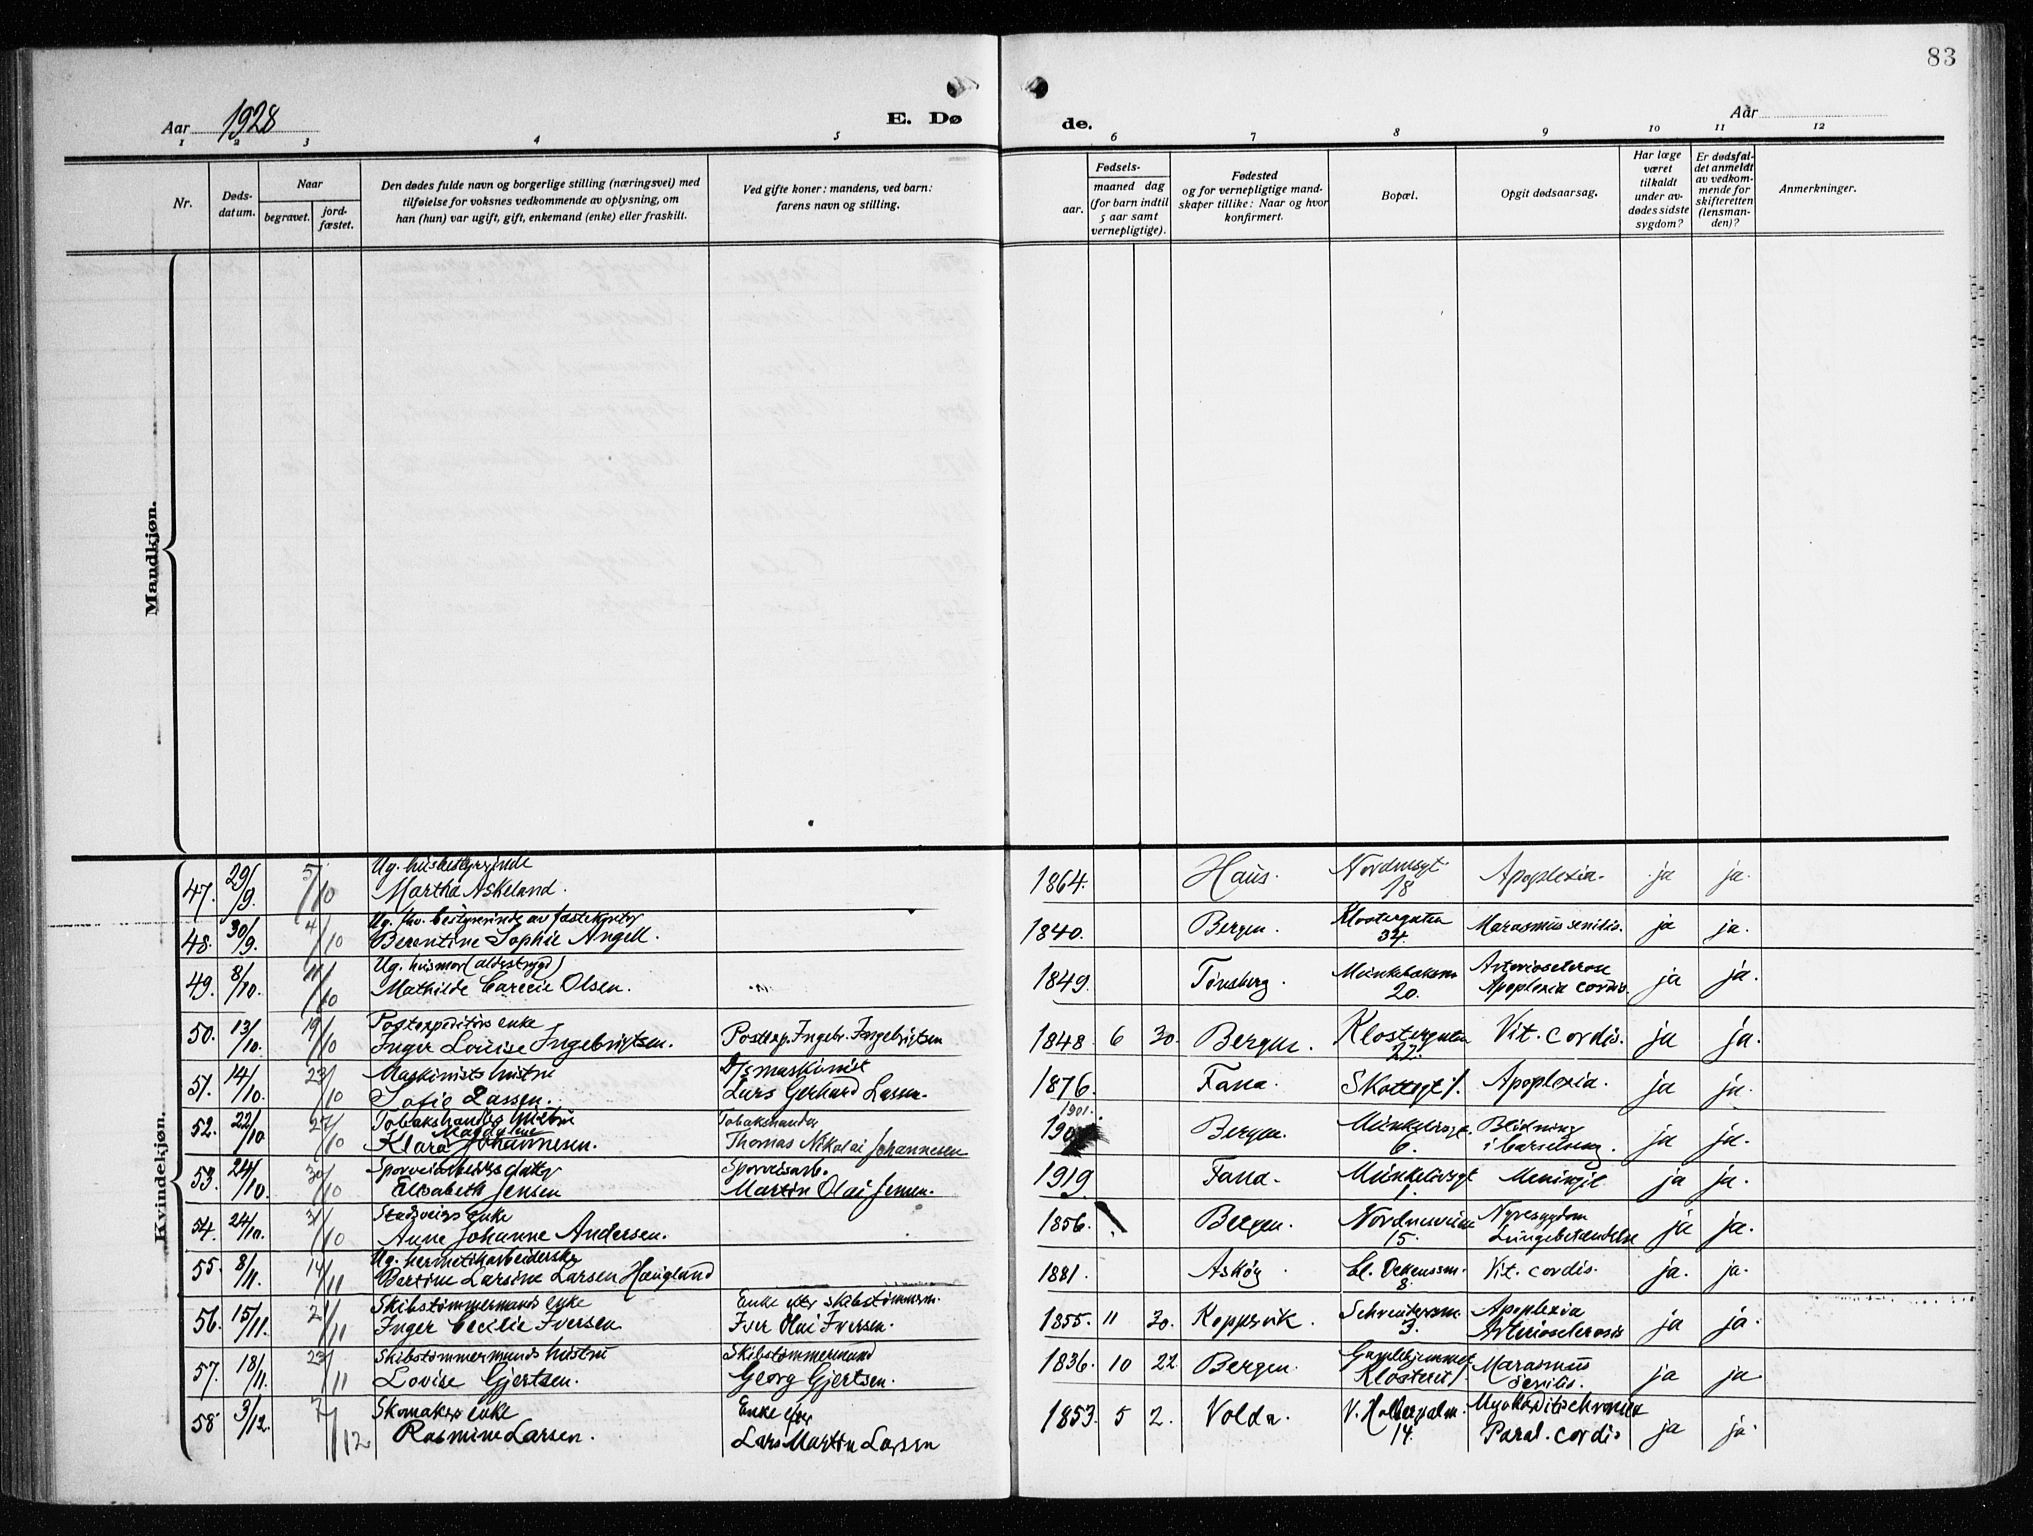 83
Aar 1928
E. Dø
de.
Aar
1 2 3 4 5 6 7 8 9 10 11 12
Nr.
Døds-
datum.
Naar
begravet.
jord-
fæstet.
Den dødes fulde navn og borgerlige stilling (næringsvei) med
tilføielse for voksnes vedkommende av oplysning, om
han (hun) var ugift, gift, enkemand (enke) eller fraskilt.
Ved gifte koner: mandens, ved barn:
farens navn og stilling.
Fødsels-
aar.
maaned dag
(for barn indtil
5 aar samt
vernepligtige).
Fødested
og for vernepligtige mand-
skaper tillike: Naar og hvor
konfirmert.
Bopæl.
Opgit dødsaarsag.
Har læge
været
tilkaldt
under av-
dødes sidste
sygdom?
Er dødsfal-
det anmeldt
av vedkom-
mende for
skifteretten
(lensman-
den)?
Anmerkninger.
Mandkjøn.
Kvindekjøn.
Ug. husbestyrerinde
47. 29/9. 5/10 Martha Askeland. 1864. Haus. 18 Apoplexia. ja ja.
Ug. fhv. bestyrerinde av
48. 30/9. 4/10 Berentine Sophie Angell. 1840. Bergen. Klostergaten 34. Marasmus senilis. ja ja.
Ug. husmor
49. 8/10. 11/10 Mathilde Olsen. 1849. Tønsberg. 20. Arteriosclerose
Apoplexia cordis. ja ja.
Postexpeditørs enke
50. 13/10. 19/10 Inger Louise Ingebrigtsen. Postexp. Ingebr. Ingebrigtsen 1848. 6 30. Bergen. Klostergaten 22. Vit. cordis. ja ja.
Maskinists hustru D/s maskinist
51. 14/10. 23/10 Sofie Lassen. Lars Gerhard Lassen. 1876. Fana. Skottegt. 1. Apoplexia. ja ja.
Tobakshandlers hustru Tobakshandler 1901.
52. 22/10 27/10 Klara Magdalene Johannesen. Thomas Nikolai Johannesen Bergen. 6. Blødning
i barselseng. ja ja.
Sporveisarb.
53. 24/10. 30/10 Elisabeth Jensen Martin Olai Jensen. 1919 Fana. 1. ja ja.
enke
54. 24/10. 31/10 Anne Johanne Andersen. 1856. Bergen. 15. Nyresygdom
Lungebetændelse ja ja.
Ug. hermetikarbeiderske
55. 8/11. 14/11 Bertine Larsine Larsen Haugland 1881. Askøy. 8. Vit. cordis. ja. ja.
Skibstømmermands enke Enke efter skibstømmerm.
56. 15/11. 21/11 Inger Cecilie Iversen Iver Olai Iversen. 1855. 11 30. Kopervik. 3. Apoplexia
Arteriosclerosis ja ja.
Skibstømmermands hustru Skibstømmermand
57. 18/11. 23/11 Lovise Gjertsen. Georg Gjertsen. 1836. 10 22. Bergen. Gamlehjemmet Marasmus
senilis. ja ja.
Skomakers enke Enke efter
58 3/12. 7/12 Rasmine Larsen. Lars Martin Larsen 1853. 5 2. Volda. 14. Paral. cordis ja ja.